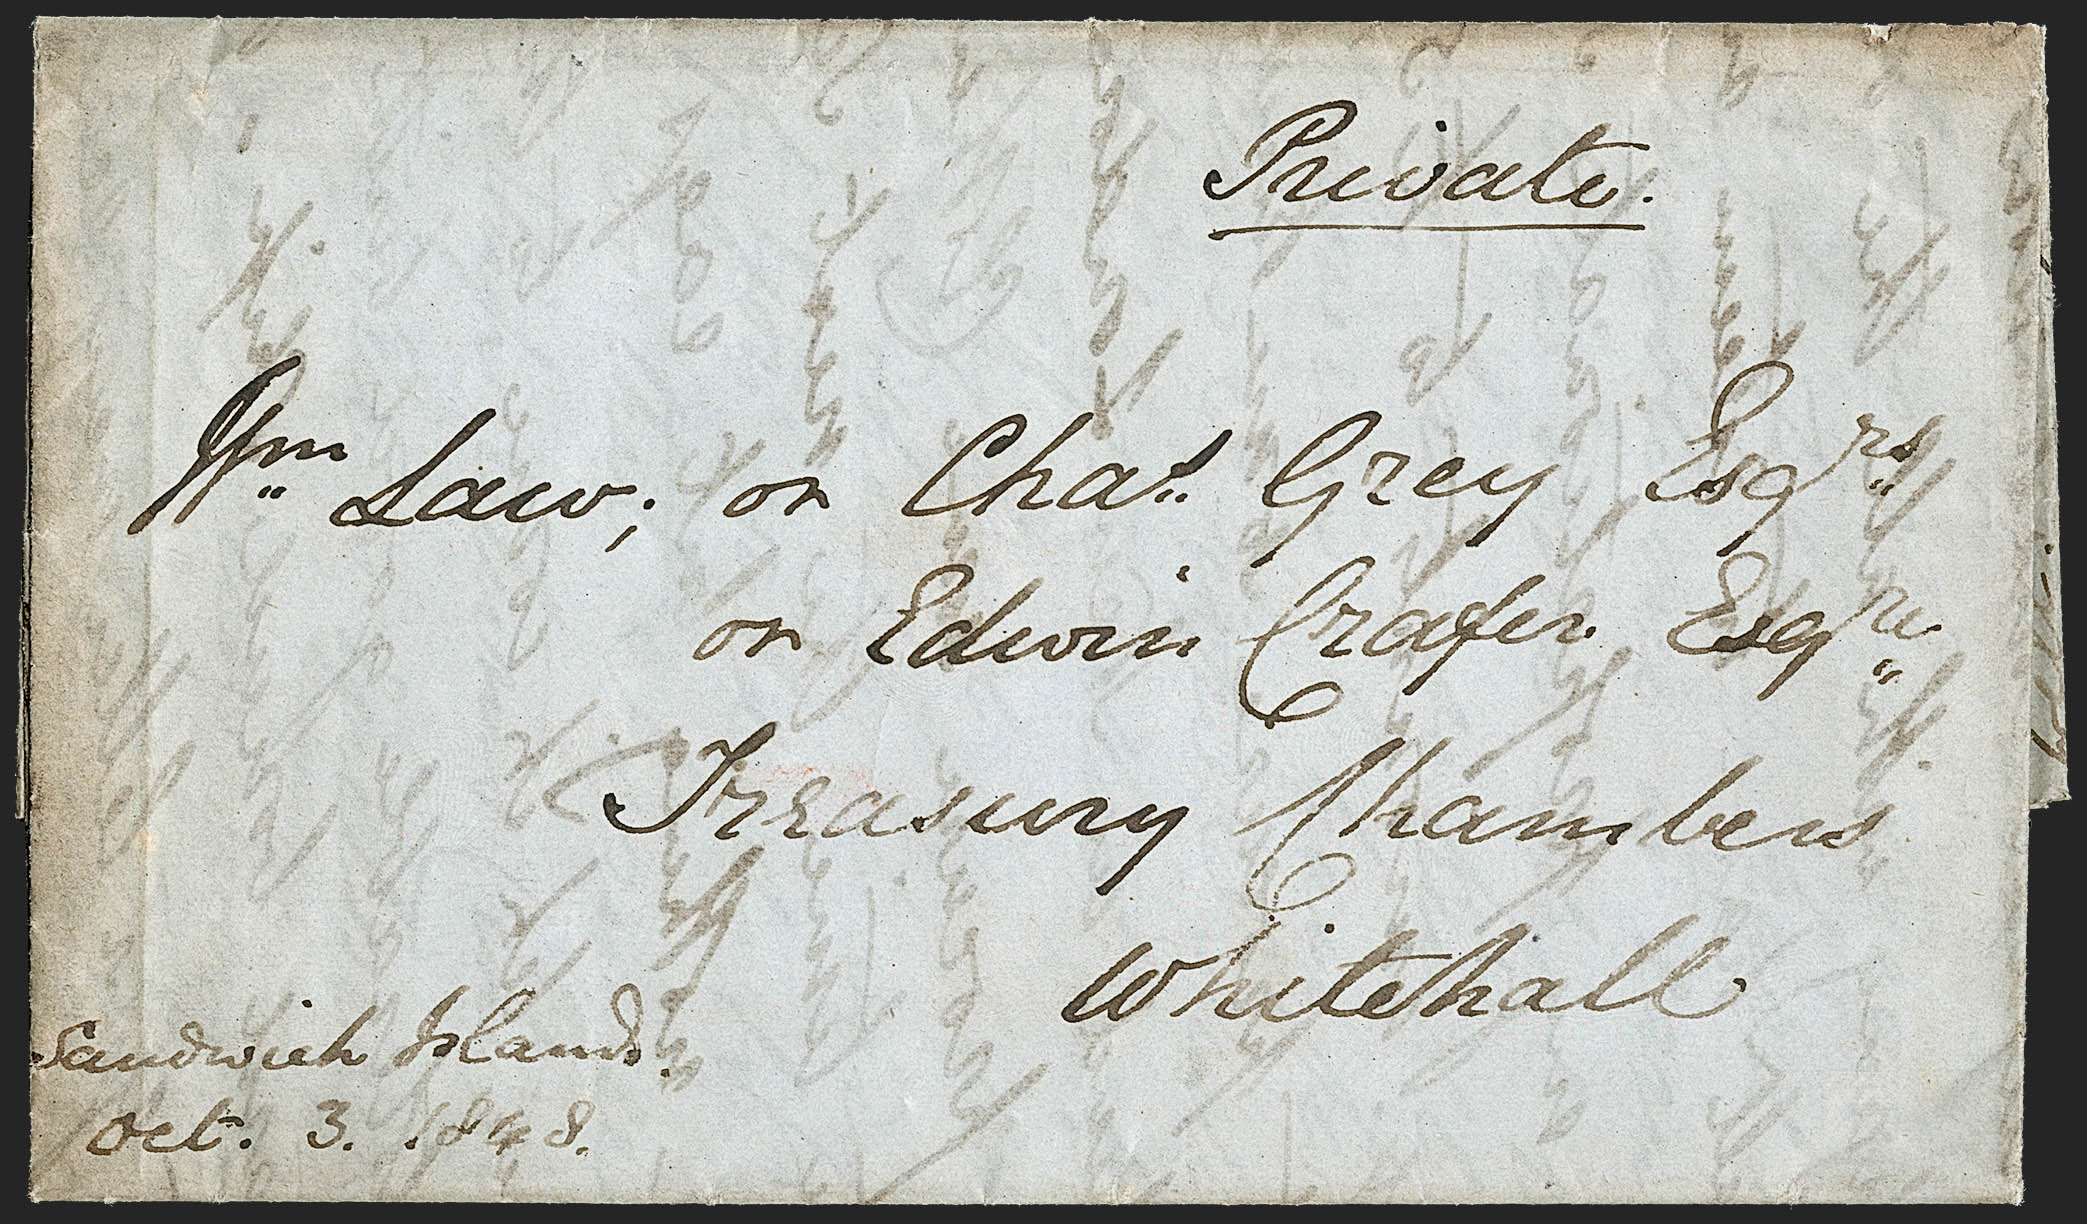 Private.
Wm Law; or Chas Grey Esqrs
or Edwin Crafer Esqre
Treasury Chambers
Whitehall
Sandwich Islands.
Oct. 3. 1848.